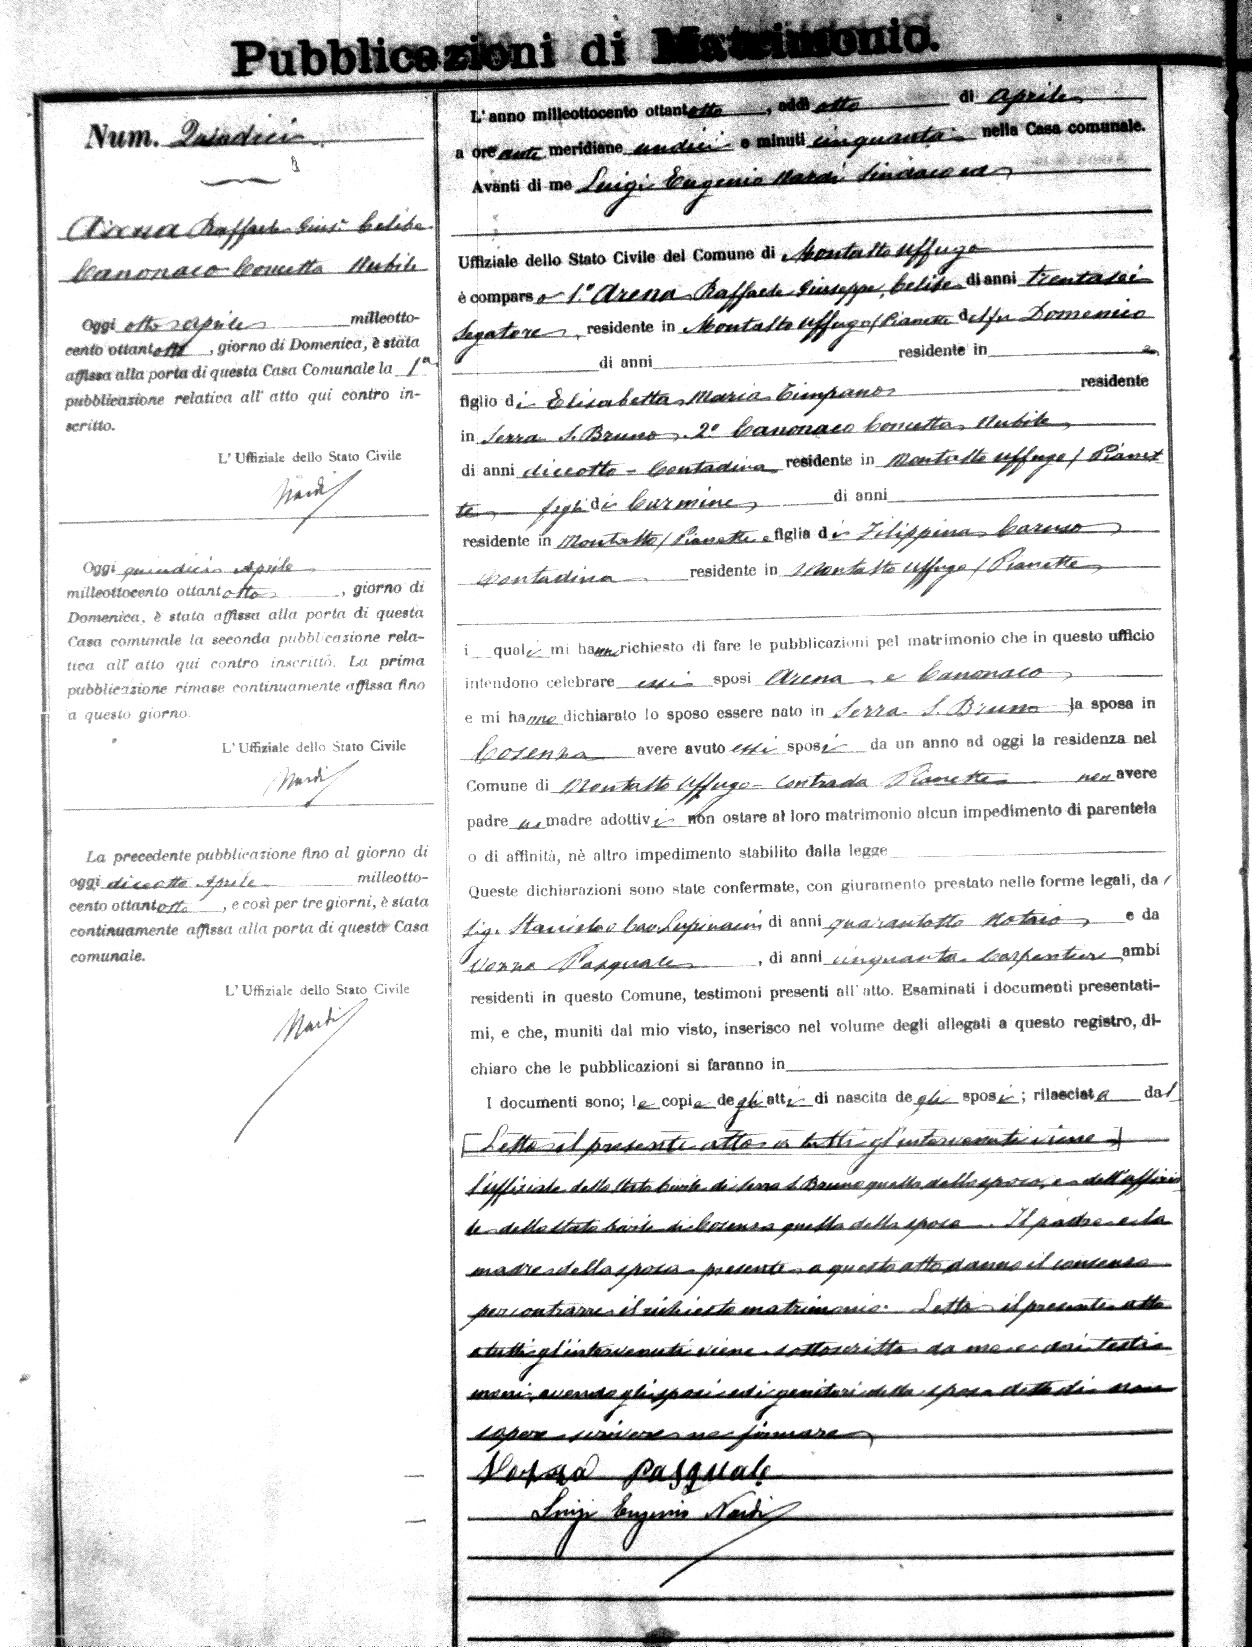 Pubblicazioni di Matrimonio.
Num. Quindici
Arena Raffaele Gius.e Celibe
Canonaco Concetta Nubile
Oggi otto aprile milleotto-
cento ottantotto, giorno di Domenica, è stata
affissa alla porta di questa Casa Comunale la 1a
pubblicazione relativa all' atto qui contro in-
scritto.
L' Uffiziale dello Stato Civile
Nardi
Oggi quindici Aprile
milleottocento ottantotto, giorno di
Domenica, è stata affissa alla porta di questa
Casa comunale la seconda pubblicazione rela-
tica all' atto qui contro inscritto. La prima
pubblicazione rimase continuamente affissa fino
a questo giorno.
L' Uffiziale dello Stato Civile
Nardi
La precedente pubblicazione fino al giorno di
oggi diecotto Aprile milleotto-
cento ottantotto, e così per tre giorni, è stata
continuamente affissa alla porta di questa Casa
comunale.
L' Uffiziale dello Stato Civile
Nardi
L' anno milleottocento ottantotto, addì otto di Aprile
a ore ante meridiane undici e minuti cinquanta nella Casa comunale.
Avanti di me Luigi Eugenio Nardi Sindaco ed
Uffiziale dello Stato Civile del Comune di Montalto Uffugo
è comparso 1.o Arena Raffaele Giuseppe, Celibe di anni trentasei
Segatore, residente in Montalto Uffugo/Pianette del fu Domenico
di anni residente in
figlio di Elisabetta Maria Timpano residente
in Serra S. Bruno. 2.o Canonaco Concetta Nubile
di anni diecotto - Contadina residente in Montalto Uffugo / Pianet
te figli di Carmine di anni
residente in Montalto / Pianette e figlia di Filippina Caruso
Contadina residente in Montalto Uffugo / Pianette
i quali mi hanno richiesto di fare le pubblicazioni pel matrimonio che in questo ufficio
intendono celebrare essi sposi Arena e Canonaco
e mi hanno dichiarato lo sposo essere nato in Serra S. Bruno la sposa in
Cosenza avere avuto essi sposi da un anno ad oggi la residenza nel
Comune di Montalto Uffugo - Contrada Pianette non avere
padre ne madre adottivi non ostare al loro matrimonio alcun impedimento di parentela
o di affinità, nè altro impedimento stabilito dalla legge
Queste dichiarazioni sono state confermate, con giuramento prestato nelle forme legali, da
Sig. Stanislao Cav. Lupinacci di anni quarantotto Notaio e da
Verna Pasquale, di anni cinquanta Carpentiere ambi
residenti in questo Comune, testimoni presenti all' atto. Esaminati i documenti presentati-
mi, e che, muniti dal mio visto, inserisco nel volume degli allegati a questo registro, di-
chiaro che le pubblicazioni si faranno in
I documenti sono; le copie degli atti di nascita degli sposi; rilasciata dal
Letto il presente atto a tutti gl'intervenuti viene
l'uffiziale dello Stato Civile di Serra S. Bruno quella dello sposo, e dell'uffizia
le dello Stato Civile di Cosenza quella della sposa. Il padre e la
madre della sposa presenti a questo atto danno il consenso
per contrarre il richiesto matrimonio. Letto il presente atto
a tutti gl'intervenuti viene sottoscritto da me e dai testi
moni, avendo gli sposi ed i genitori della sposa detto di non
sapere scrivere ne firmare
Verna Pasquale
Luigi Eugenio Nardi